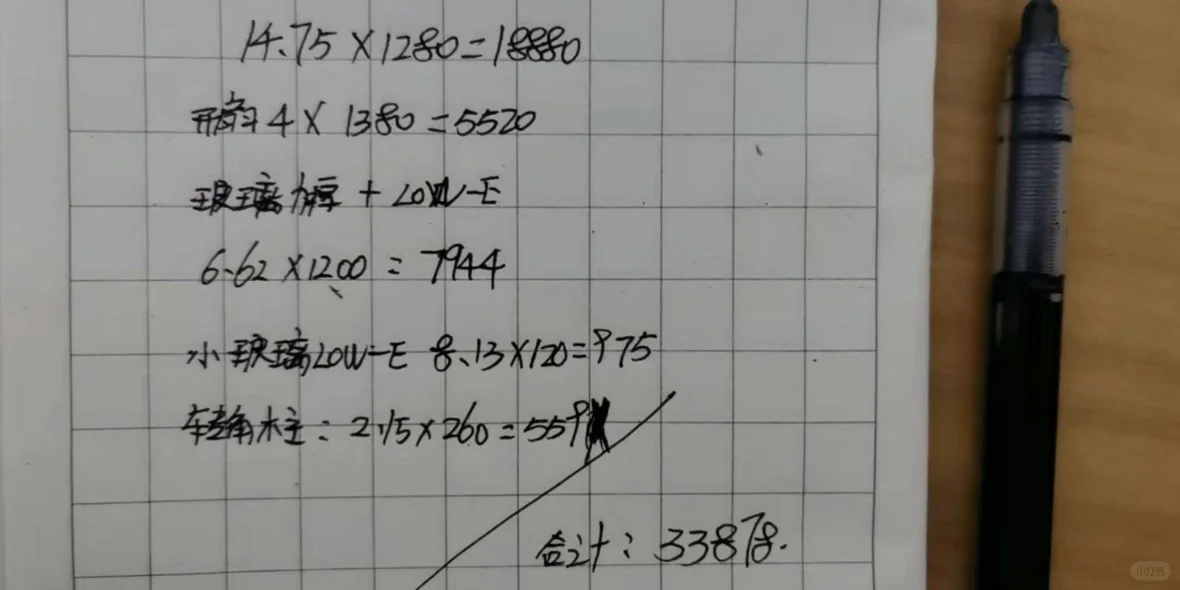 14.75×1280=18880
开扇4×1380=5520
玻璃加厚+LOW-E
6.62×1200=7944
小玻璃LOW-E 8.13×120=975
转角木主:2.15×260=559
合计:33878.
小红书